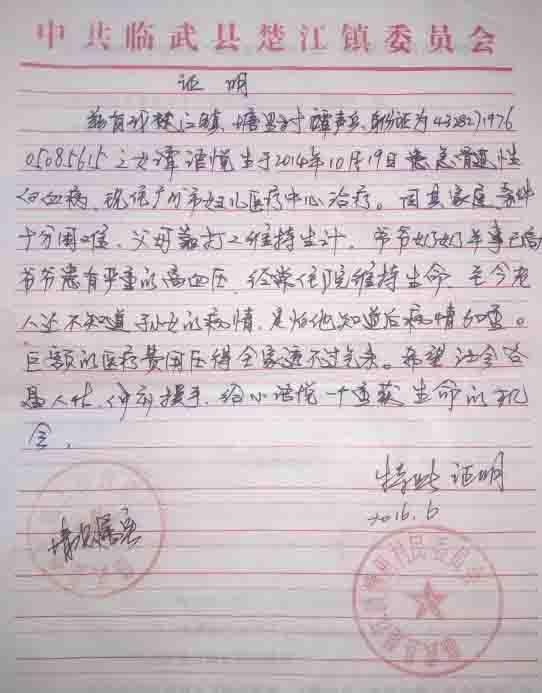 中共临武县楚江镇委员会
证明
兹有我楚江镇塘 村谭声 身份证为432827197
605085615之女谭语悦生于2014年10月19日患急骨髓性
白血病,现住广州市妇儿医疗中心治疗。因其家庭条件
十分困难,父母靠打工维持生计,爷爷奶奶年事已高
爷爷患有严重的高血压,经常住院维持生命,至今老
人还不知道孙女的病情,是怕他知道后病情加重。
巨额的医疗费用压得全家透不过气来。希望社会各
界人仕,伸出援手,给小语悦一个重获生命的机
会。
特此证明
情况属实
2016.6